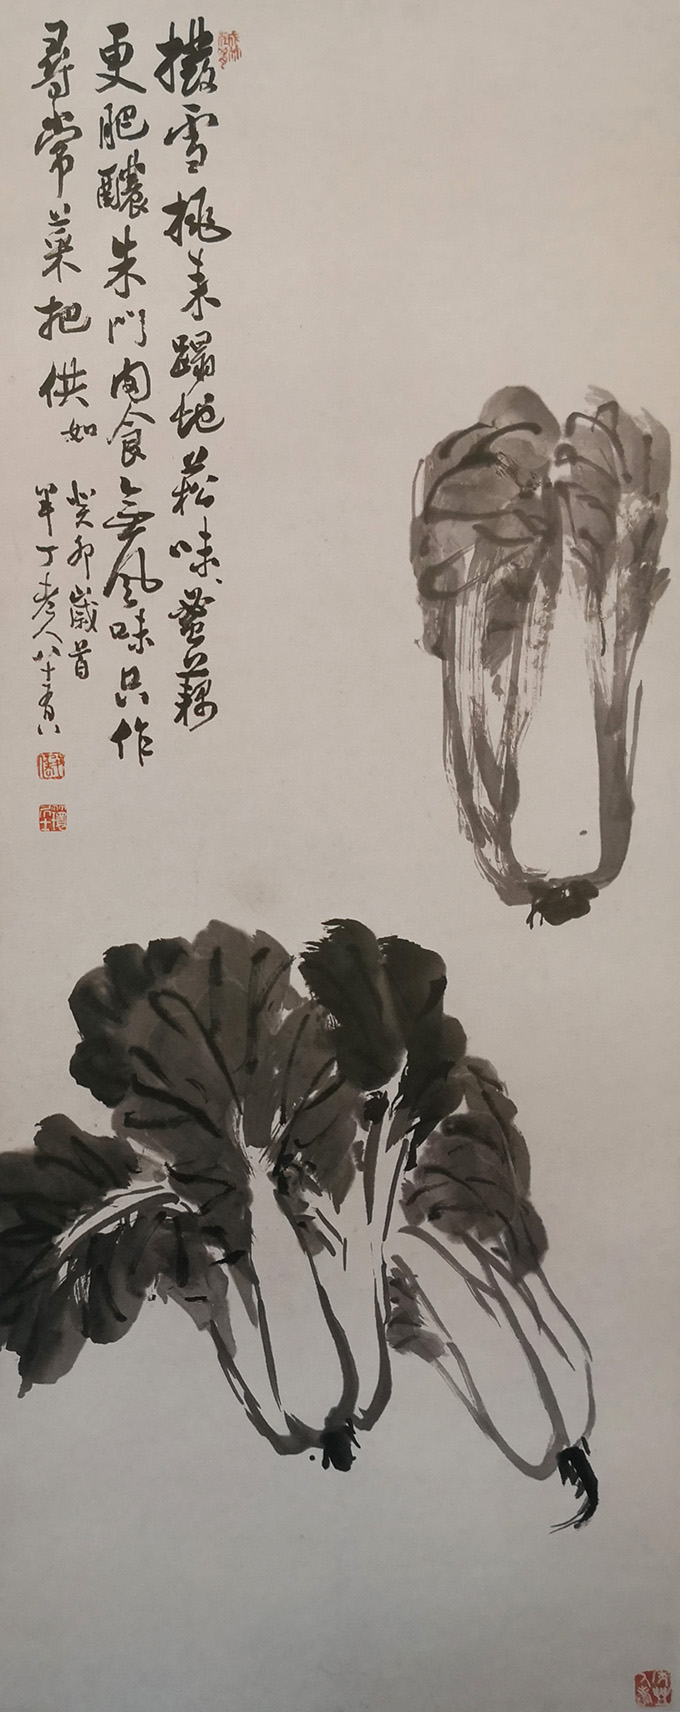 撥雪挑来蹋地菘味蜜藕
更肥醲朱門肉食無風味只作
尋常菜把供如
癸卯歲首
半丁老人八十有八